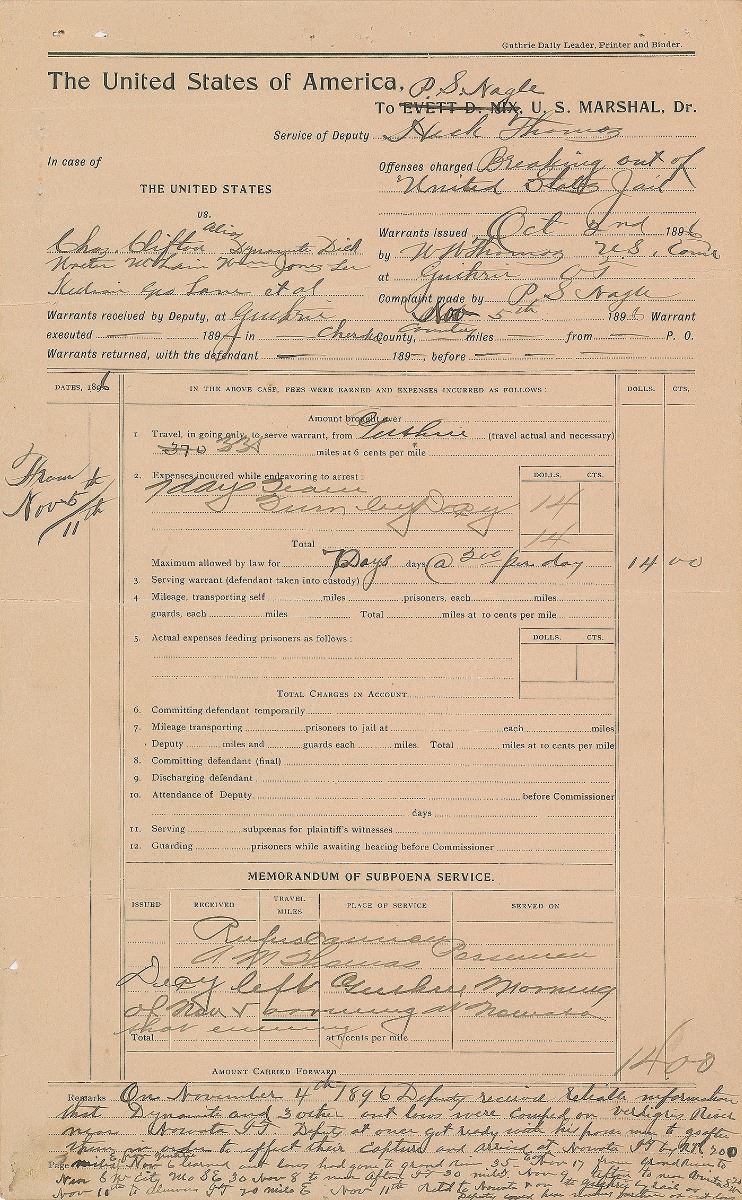 Guthrie Daily Leader, Printer and Binder.
The United States of America,
P. S. Nagle
To EVETT D. NIX, U. S. MARSHAL, Dr.
Service of Deputy Heck Thomas
In case of
THE UNITED STATES
vs.
alias
Chas. Clifton Dynamite Dick
Jones Lee
Geo Lane et al
Offenses charged Breaking out of
United States Jail
Warrants issued Oct 2nd 1896
by W W Thomas U.S. Com
at Guthrie O T
Complaint made by P S Nagle
Warrants received by Deputy, at Guthrie Nov 5th 1896 Warrant
executed 189 in County, miles from P. O.
County
Warrants returned, with the defendant 189 , before
DATES, 1896
IN THE ABOVE CASE, FEES WERE EARNED AND EXPENSES INCURRED AS FOLLOWS:
DOLLS. CTS.
Amount brought over
1 Travel, in going only, to serve warrant, from Guthrie (travel actual and necessary)
370 335 miles at 6 cents per mile
From
Nov 5th
11th
2. Expenses incurred while endeavoring to arrest:
DOLLS. CTS.
7 days
14
Total 14
Maximum allowed by law for 7 Days days @ 2.00 per day 14 00
3. Serving warrant (defendant taken into custody)
4 Mileage, transporting self miles prisoners, each miles
guards, each miles Total miles at 10 cents per mile
5. Actual expenses feeding prisoners as follows:
DOLLS. CTS.
TOTAL CHARGES IN ACCOUNT
6. Committing defendant temporarily
7. Mileage transporting prisoners to jail at each miles
Deputy miles and guards each miles. Total miles at 10 cents per mile
8. Committing defendant (final)
9. Discharging defendant
10. Attendance of Deputy before Commissioner
days
11. Serving subpœnas for plaintiff's witnesses
12. Guarding prisoners while awaiting hearing before Commissioner
MEMORANDUM OF SUBPOENA SERVICE.
ISSUED RECEIVED TRAVEL MILES PLACE OF SERVICE SERVED ON
Rufus Cannon
A M Thomas Possemen
Depy left Guthrie Morning
of Nov 5 arriving at Nowata
that evening
Total at 6 cents per mile
AMOUNT CARRIED FORWARD 14 00
Remarks On November 4th 1896 Deputy received reliable information
that Dynamite and 3 other out laws were camped on Verdigris River
near Nowata I T Depty at once got ready with his posse men to go after
them in order to effect their capture and arrived at Nowata I T by RR 200
miles Nov 6 learned out laws had gone to Grand River 35 Nov 7
Nov 8 30 miles Nov 9
Nov 10th to I T 20 miles E Nov 11th retd to Nowata